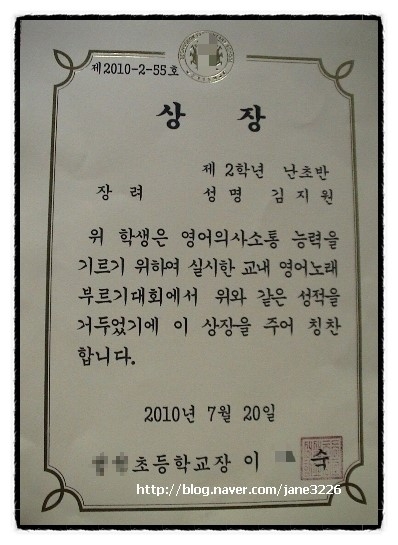 제2010-2-55호
상 장
제 2학년 난초반
장 려 성 명 김 지 원
위 학생은 영어의사소통 능력을
기르기 위하여 실시한 교내 영어노래
부르기대회에서 위와 같은 성적을
거두었기에 이 상장을 주어 칭찬
합니다.
2010년 7월 20일
초등학교장 이 숙
http://blog.naver.com/jane3226